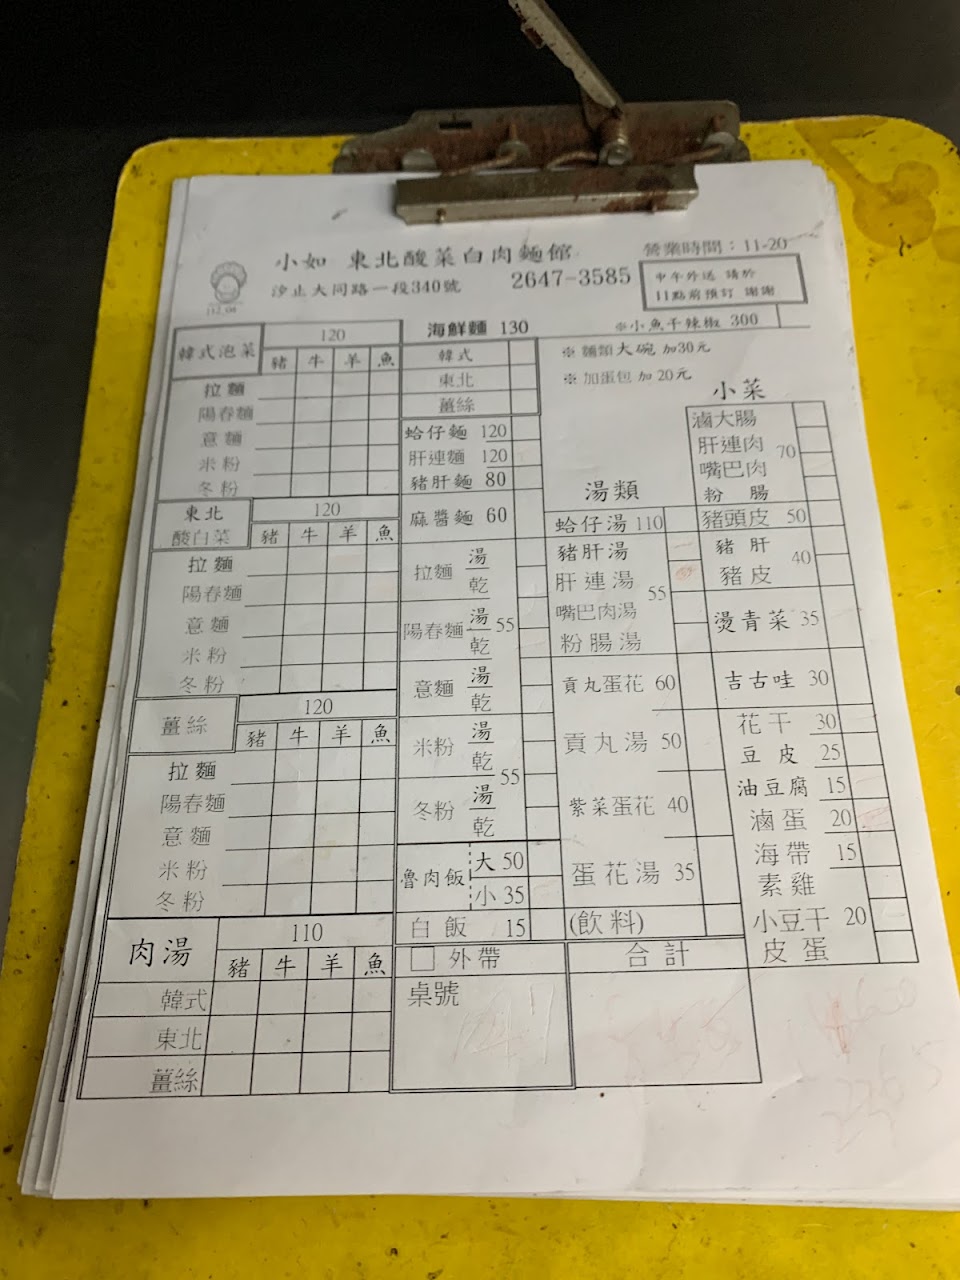 小如 東北酸菜白肉麵館
營業時間：11-20
汐止大同路一段340號
2647-3585
中午外送 請於
11點前預訂 謝謝
112.04
韓式泡菜
120
豬 牛 羊 魚
拉麵
陽春麵
意麵
米粉
冬粉
東北
酸白菜
120
豬 牛 羊 魚
拉麵
陽春麵
意麵
米粉
冬粉
薑絲
120
豬 牛 羊 魚
拉麵
陽春麵
意麵
米粉
冬粉
肉湯
110
豬 牛 羊 魚
韓式
東北
薑絲
海鮮麵 130
韓式
東北
薑絲
蛤仔麵 120
肝連麵 120
豬肝麵 80
麻醬麵 60
拉麵 湯 乾
陽春麵 湯 乾 55
意麵 湯 乾
米粉 湯 乾
55
冬粉 湯 乾
魯肉飯 大 50
小 35
白飯 15
外帶
桌號
※小魚干辣椒 300
※ 麵類大碗 加30元
※ 加蛋包 加 20元
湯類
蛤仔湯 110
豬肝湯
肝連湯
55
嘴巴肉湯
粉腸湯
貢丸蛋花 60
貢丸湯 50
紫菜蛋花 40
蛋花湯 35
(飲料)
合計
小菜
滷大腸
肝連肉
70
嘴巴肉
粉 腸
豬頭皮 50
豬肝
40
豬皮
燙青菜 35
吉古哇 30
花干 30
豆皮 25
油豆腐 15
滷蛋 20
海帶 15
素雞
小豆干 20
皮蛋